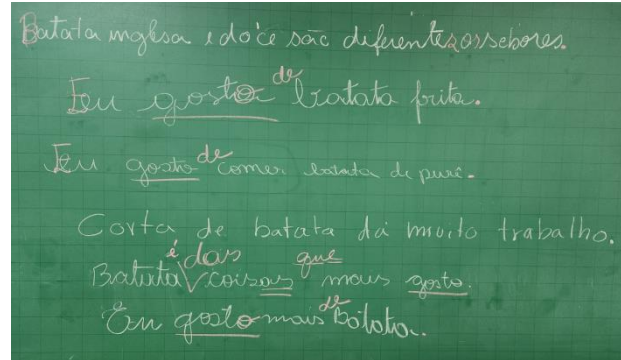 Batata inglesa e doce são diferentes os sebores.
Eu gosto de batata frita.
Eu gosto de comer batata de purê.
Corta de batata dá muito trabalho.
Batata é das coisas que mais gosto.
Eu gosto mais de batata.